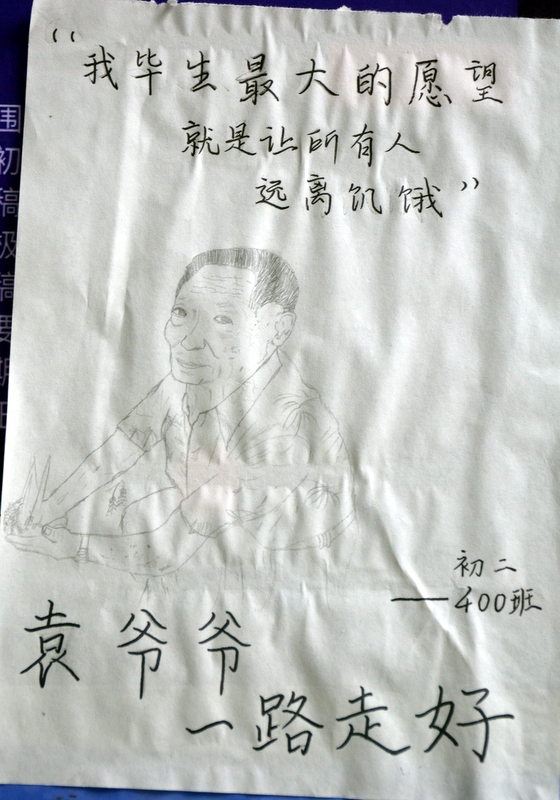 “我毕生最大的愿望
就是让所有人
远离饥饿”
初二
——400班
袁爷爷
一路走好
围
初
稿
及
稿
要
期